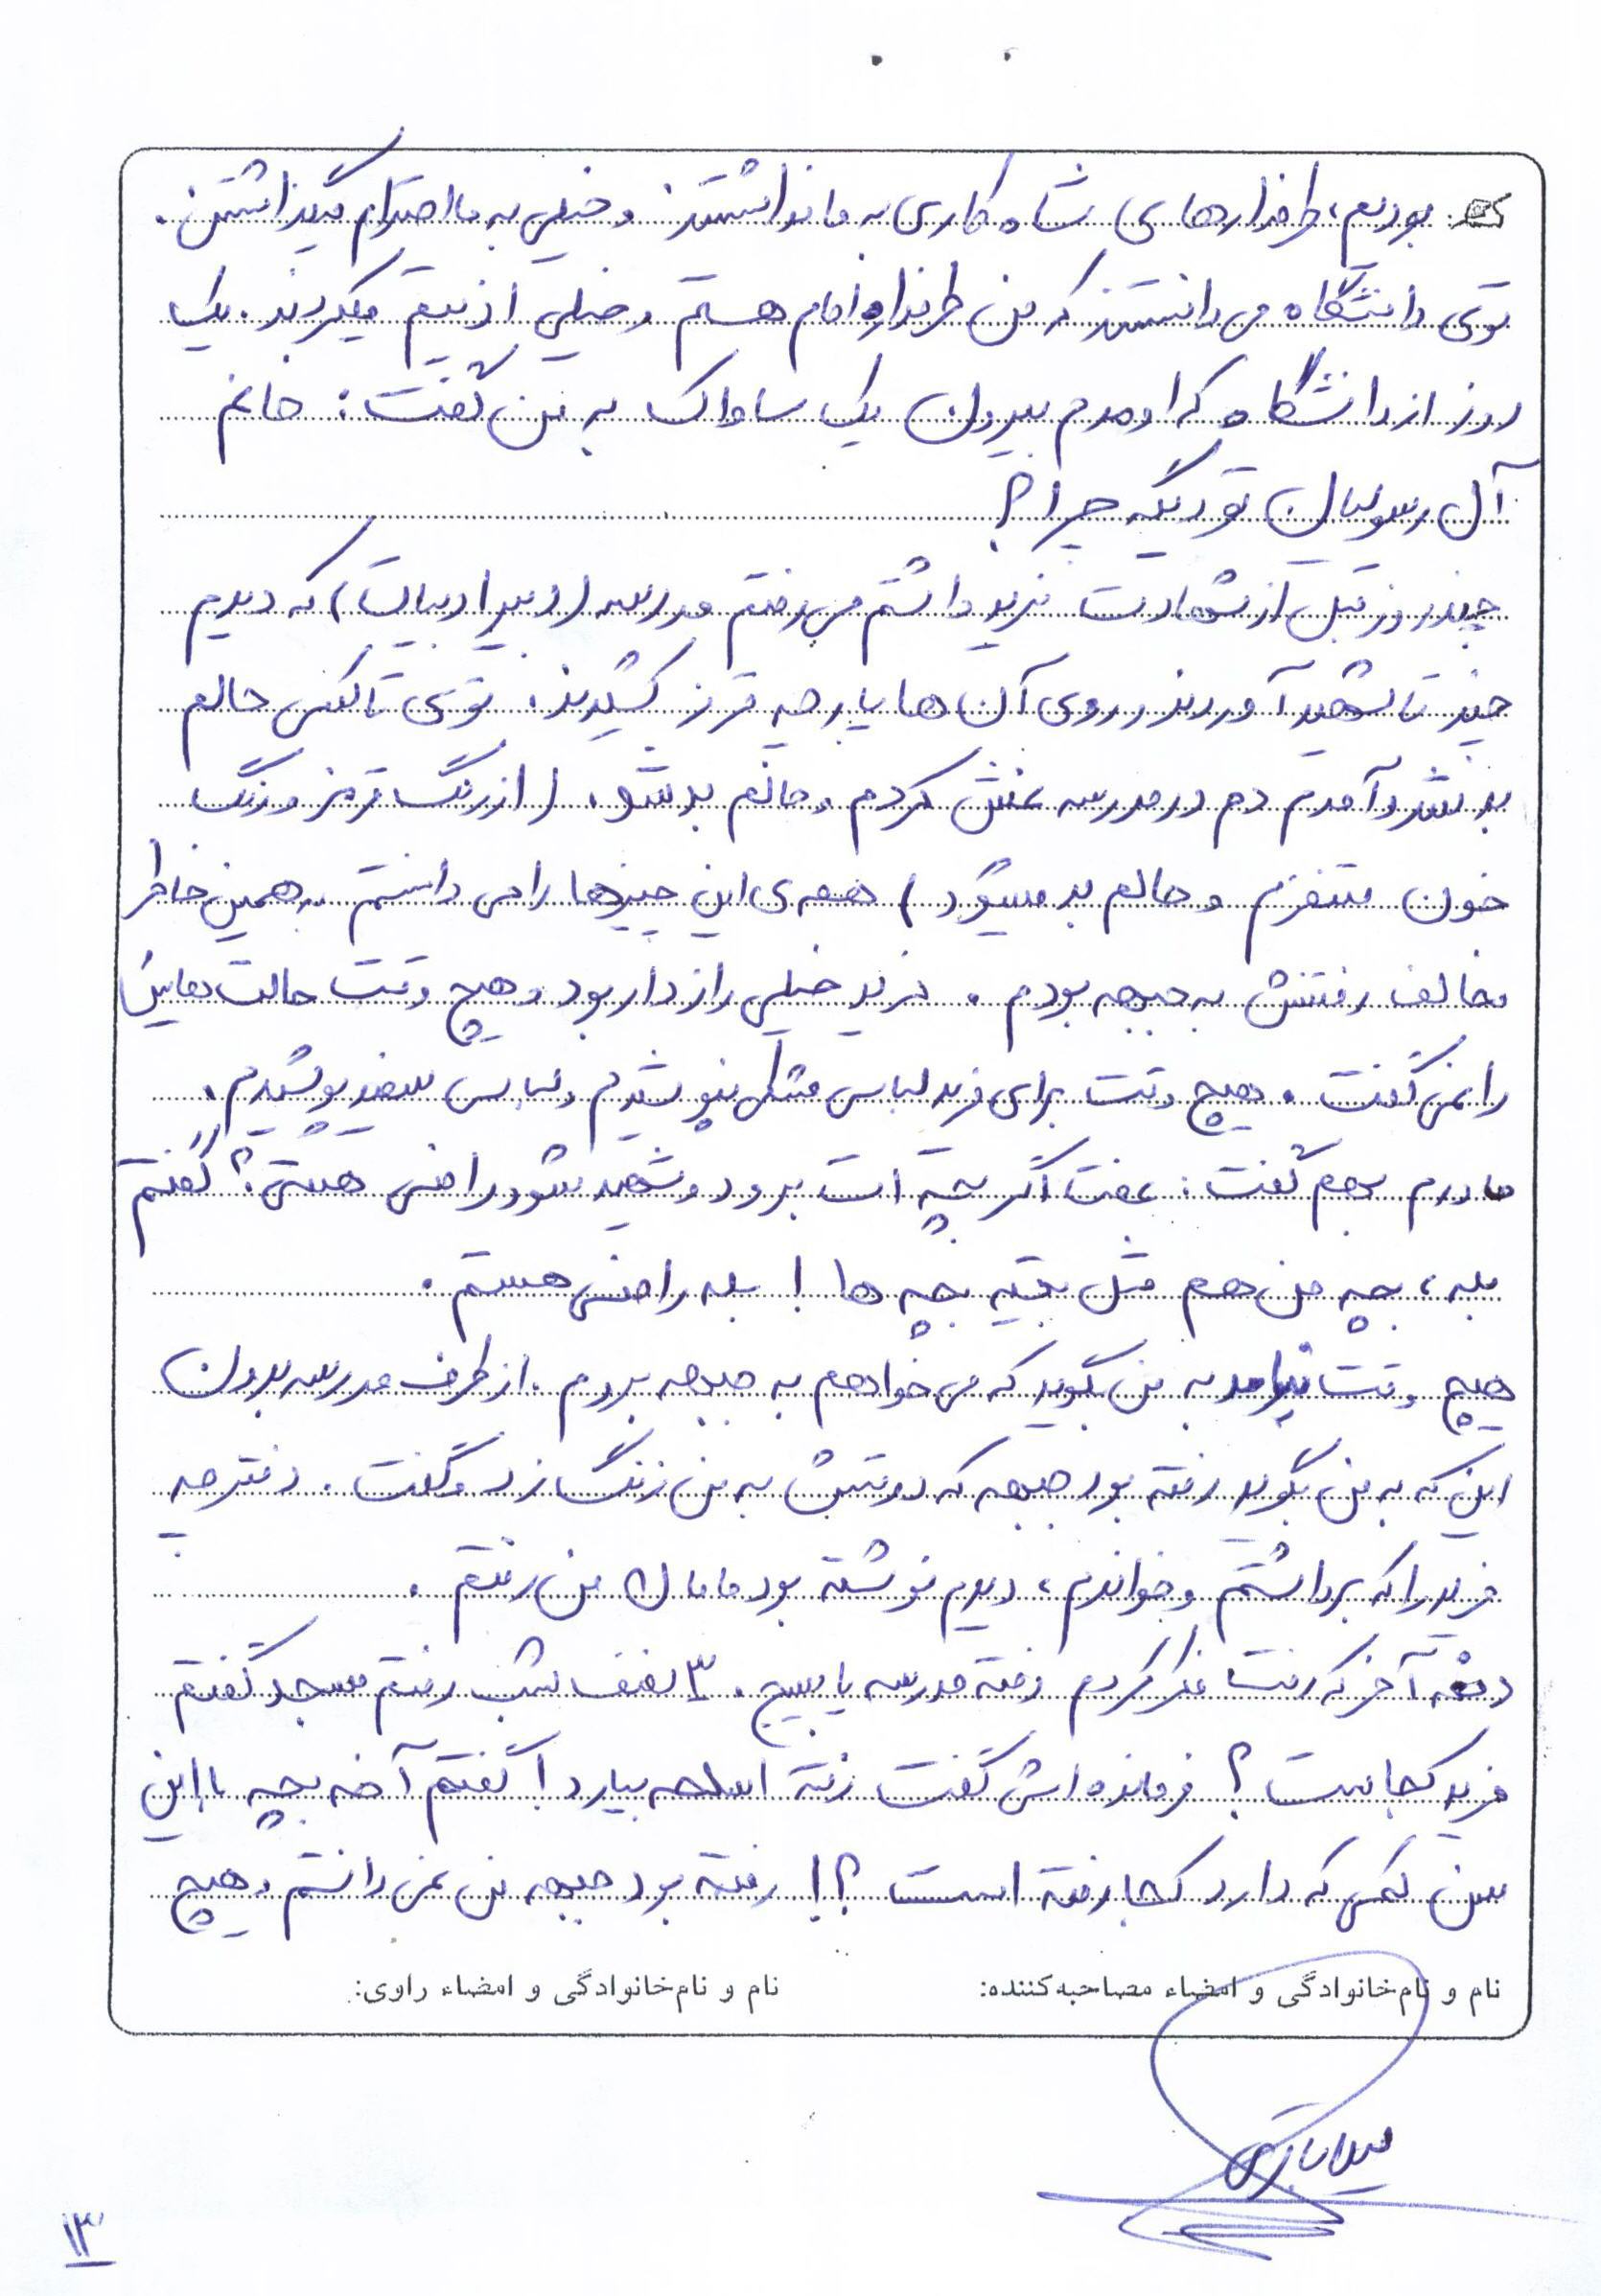 بودیم، طرفدارهای شاه کاری به ما نداشتند و خیلی به ما احترام میگذاشتن.
توی دانشگاه می دانستند که من طرفدار امام هستم و خیلی اذیتم میکردند. یک
روز از دانشگاه که اومدم بیرون یک ساواک به من گفت: خانم
آل رسولیان تو دیگه چرا؟
چند روز قبل از شهادت فرید داشتم می رفتم مدرسه (دبیر ادبیات) که دیدم
چند تا شهید آوردند و روی آن ها پارچه قرمز کشیدند. توی تاکسی حالم
بد شد و آمدم دم در مدرسه غش کردم و حالم بد شد. (از رنگ قرمز و رنگ
خون متنفرم و حالم بد میشود) همه ی این چیزها را می دانستم به همین خاطر
مخالف رفتنش به جبهه بودم. فرید خیلی رازدار بود و هیچ وقت حالت هایش
را نمی گفت. هیچ وقت برای فرید لباس مشکی نپوشیدم و لباس سفید پوشیدم.
مادرم بهم گفت: عفت اگر بچه ات برود و شهید شود راضی هستی؟ گفتم
بله، بچه من هم مثل بقیه بچه ها! بله راضی هستم.
هیچ وقت نیامد به من بگوید که می خواهم به جبهه بروم. از طرف مدرسه بدون
این که به من بگوید رفته بود جبهه که دوستش به من زنگ زد و گفت. دفترچه
فرید را که برداشتم و خواندم، دیدم نوشته بود مامان من رفتم.
دفعه آخر که رفت فکر کردم رفته مدرسه یا بسیج. ۳ نصف شب رفتم مسجد گفتم
فرید کجاست؟ فرمانده اش گفت رفته اسلحه بیارد! گفتم آخه بچه با این
سن کمی که دارد کجا رفته است؟! رفته بود جبهه من نمی دانستم و هیچ
نام و نام خانوادگی و امضاء مصاحبه کننده: نام و نام خانوادگی و امضاء راوی:
۱۳